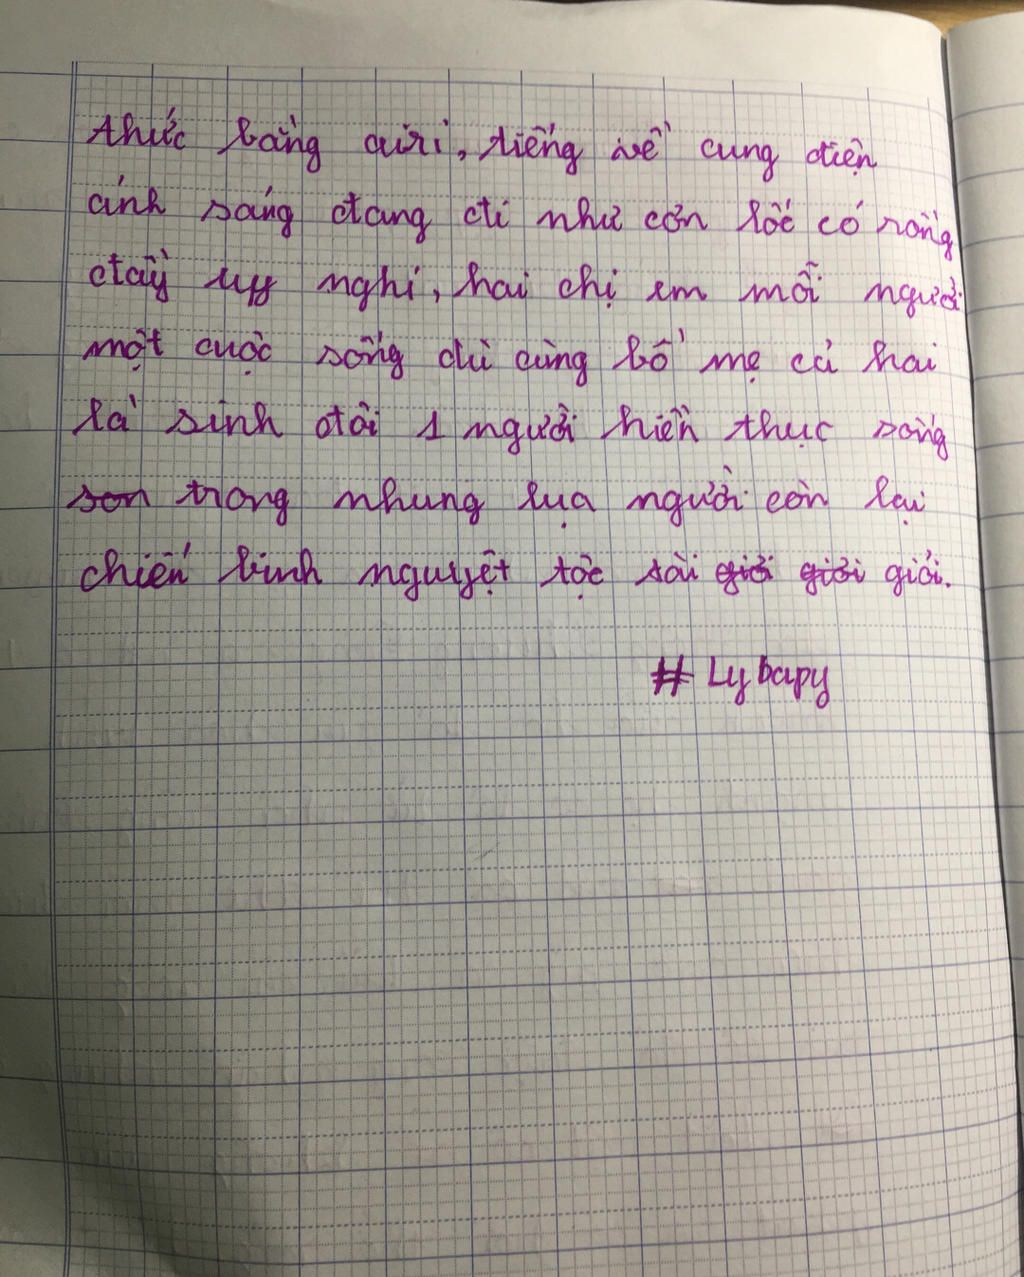 thức bằng airi, tiếng về cung điện
ánh sáng đang đi như cơn lốc có rồng
đầy uy nghi, hai chị em mỗi người
một cuộc sống dù cùng bố mẹ cả hai
là sinh đôi 1 người hiền thục sống
son trong nhung lụa người còn lại
chiến binh nguyệt tộc tài giỏi giỏi giỏi.
# Ly bapy